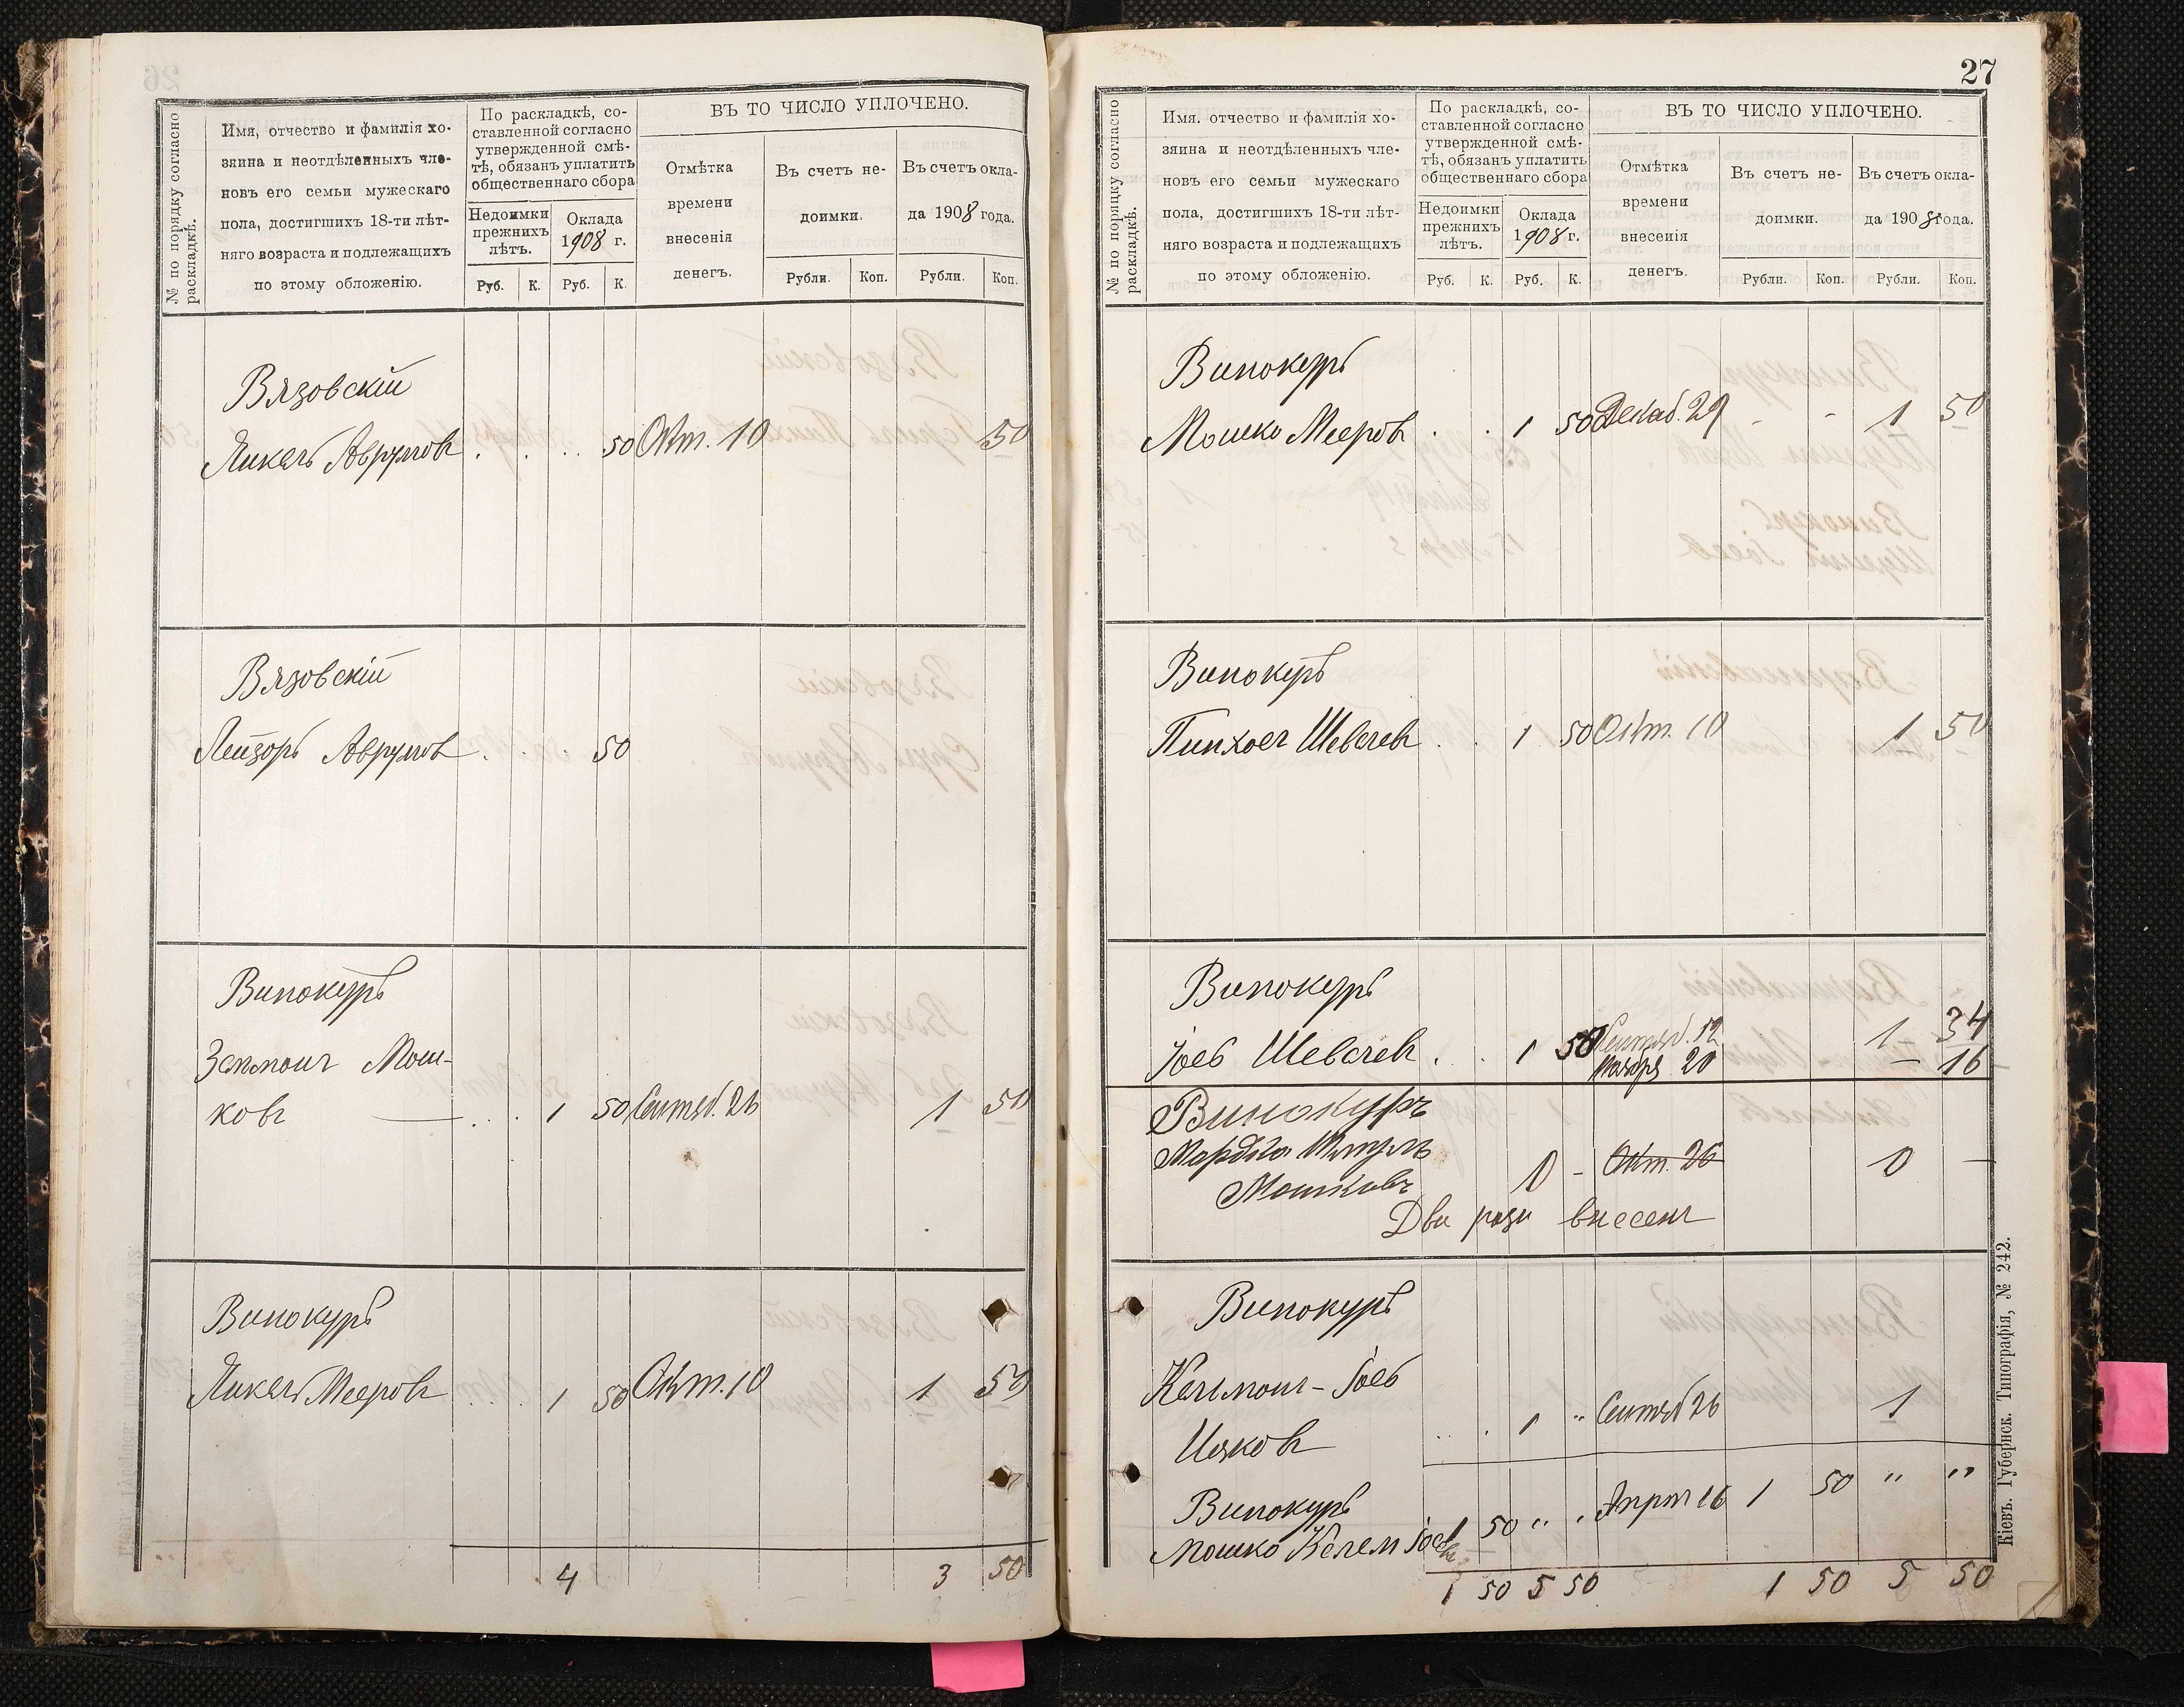 № по порядку согласно
раскладкѣ.
Имя, отчество и фамилія хо-
зяина и неотдѣленныхъ чле-
новъ его семьи мужескаго
пола, достигшихъ 18-ти лѣт-
няго возраста и подлежащихъ
по этому обложенію.
По раскладкѣ, со-
ставленной согласно
утвержденной смѣ-
тѣ, обязанъ уплатить
общественнаго сбора
Недоимки
прежнихъ
лѣтъ.
Оклада
1908 г.
Руб. К. Руб. К.
ВЪ ТО ЧИСЛО УПЛОЧЕНО.
Отмѣтка
времени
внесенія
денегъ.
Въ счетъ не-
доимки.
Въ счетъ окла-
да 1908 года.
Рубли. Коп. Рубли. Коп.
Вязовскій
Янкель Аврумовъ 50 Окт. 10 50
Вязовскій
Лейзоръ Аврумовъ 50
Винокуръ
Зельмонъ Мош-
ковъ — 1 50 Сентяб. 26 1 50
Винокуръ
Янкель Мееровъ 1 50 Окт. 10 1 50
4 3 50
27
№ по порядку согласно
раскладкѣ.
Имя. отчество и фамилія хо-
зяина и неотдѣленныхъ чле-
новъ его семьи мужескаго
пола, достигшихъ 18-ти лѣт-
няго возраста и подлежащихъ
по этому обложенію.
По раскладкѣ, со-
ставленной согласно
утвержденной смѣ-
тѣ, обязанъ уплатить
общественнаго сбора
Недоимки
прежнихъ
лѣтъ.
Оклада
1908 г.
Руб. К. Руб. К.
ВЪ ТО ЧИСЛО УПЛОЧЕНО.
Отмѣтка
времени
внесенія
денегъ.
Въ счетъ не-
доимки.
Въ счетъ окла-
да 1908 года.
Рубли. Коп. Рубли. Коп.
Винокуръ
Мошко Мееровъ 1 50 Декаб. 29 - - 1 50
Винокуръ
Пинхосъ Шевелевъ 1 50 Окт. 10 1 50
Винокуръ
Іосъ Шевелевъ 1 50 Сентяб. 12 1 34
Ноября 20 — 16
Винокуръ
Мордко Шмуль
Мошковъ 0 - Окт. 26 0 —
Два рази внесенъ
Винокуръ
Кельмонъ-Іосъ
Ицковъ 1 " Сентяб 26 1
Винокуръ
Мошко Келем Іос 1 50 " " 16 1 50 " "
1 50 5 50 1 50 5 50
Кіевъ. Губернск. Типографія, № 242.